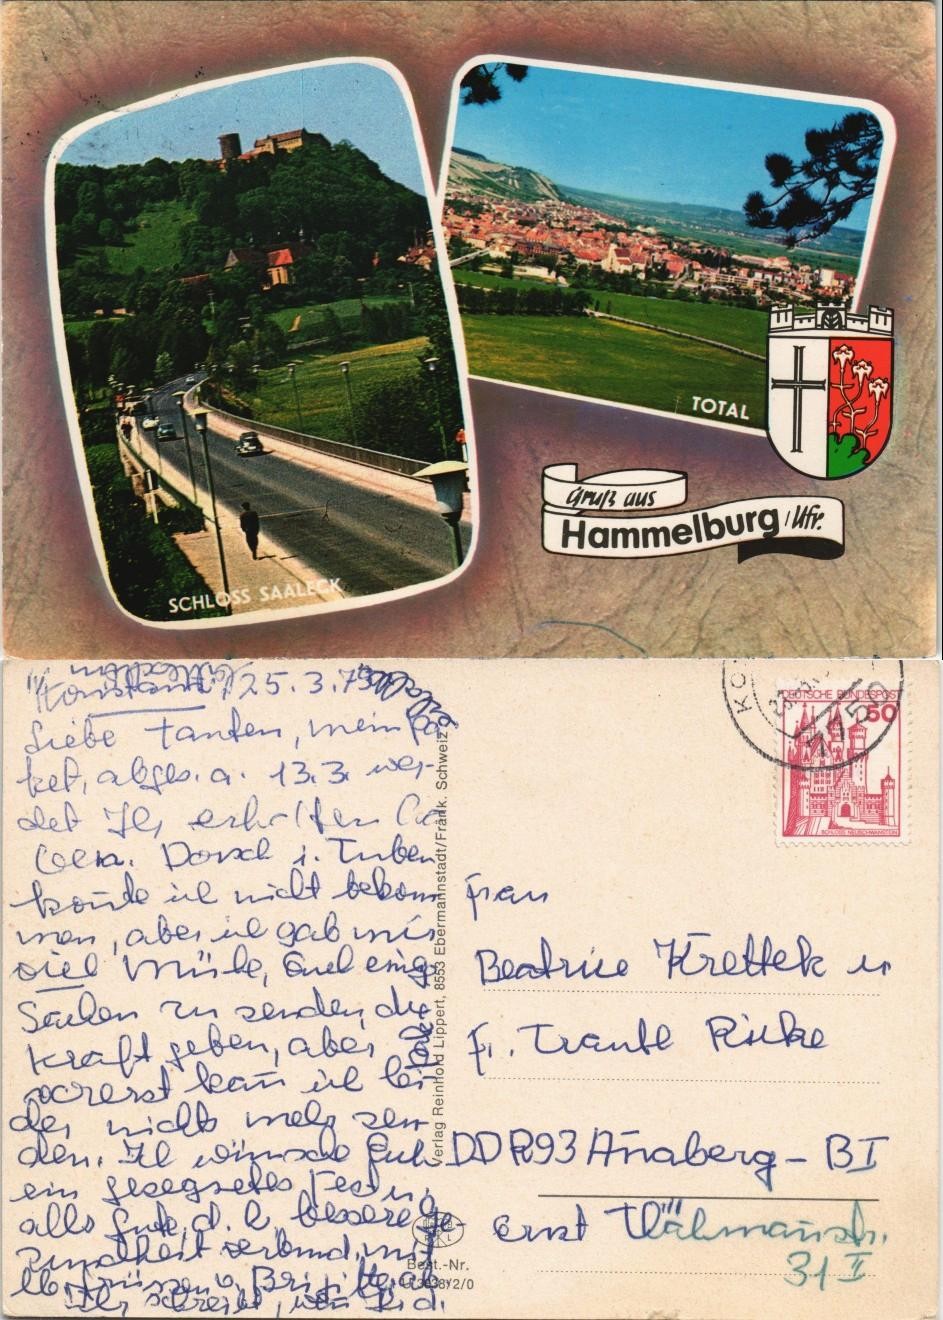 SCHLOSS SAALECK
TOTAL
Gruß aus
Hammelburg /Ufr.
Konstanz, 25.3.79
Liebe Tanten, mein Pa-
ket, abges. a. 13.3. wer-
det Ihr erhalten
Dorsch i. Tuben
konnte ich nicht bekom-
men, aber ich gab mir
viel Mühe, Euch einige
Sachen zu senden, die
Kraft geben, aber
vorerst kann ich lei-
der nichts mehr sen-
den. Ich wünsche Euch
ein gesegnetes Fest u.
alls Gute, d. h. bessere Ge-
sundheit verbund. mit
Grüssen v. Brigitte
Ihr schreibt, wenn
Verlag Reinhold Lippert, 8553 Ebermannstadt/Fränk. Schweiz
Best.-Nr.
DEUTSCHE BUNDESPOST
50
SCHLOSS NEUSCHWANSTEIN
7750
Frau
Beatrice Krettek u
Fr. Traute Ricke
DDR 93 Annaberg - B I
Ernst
31 II